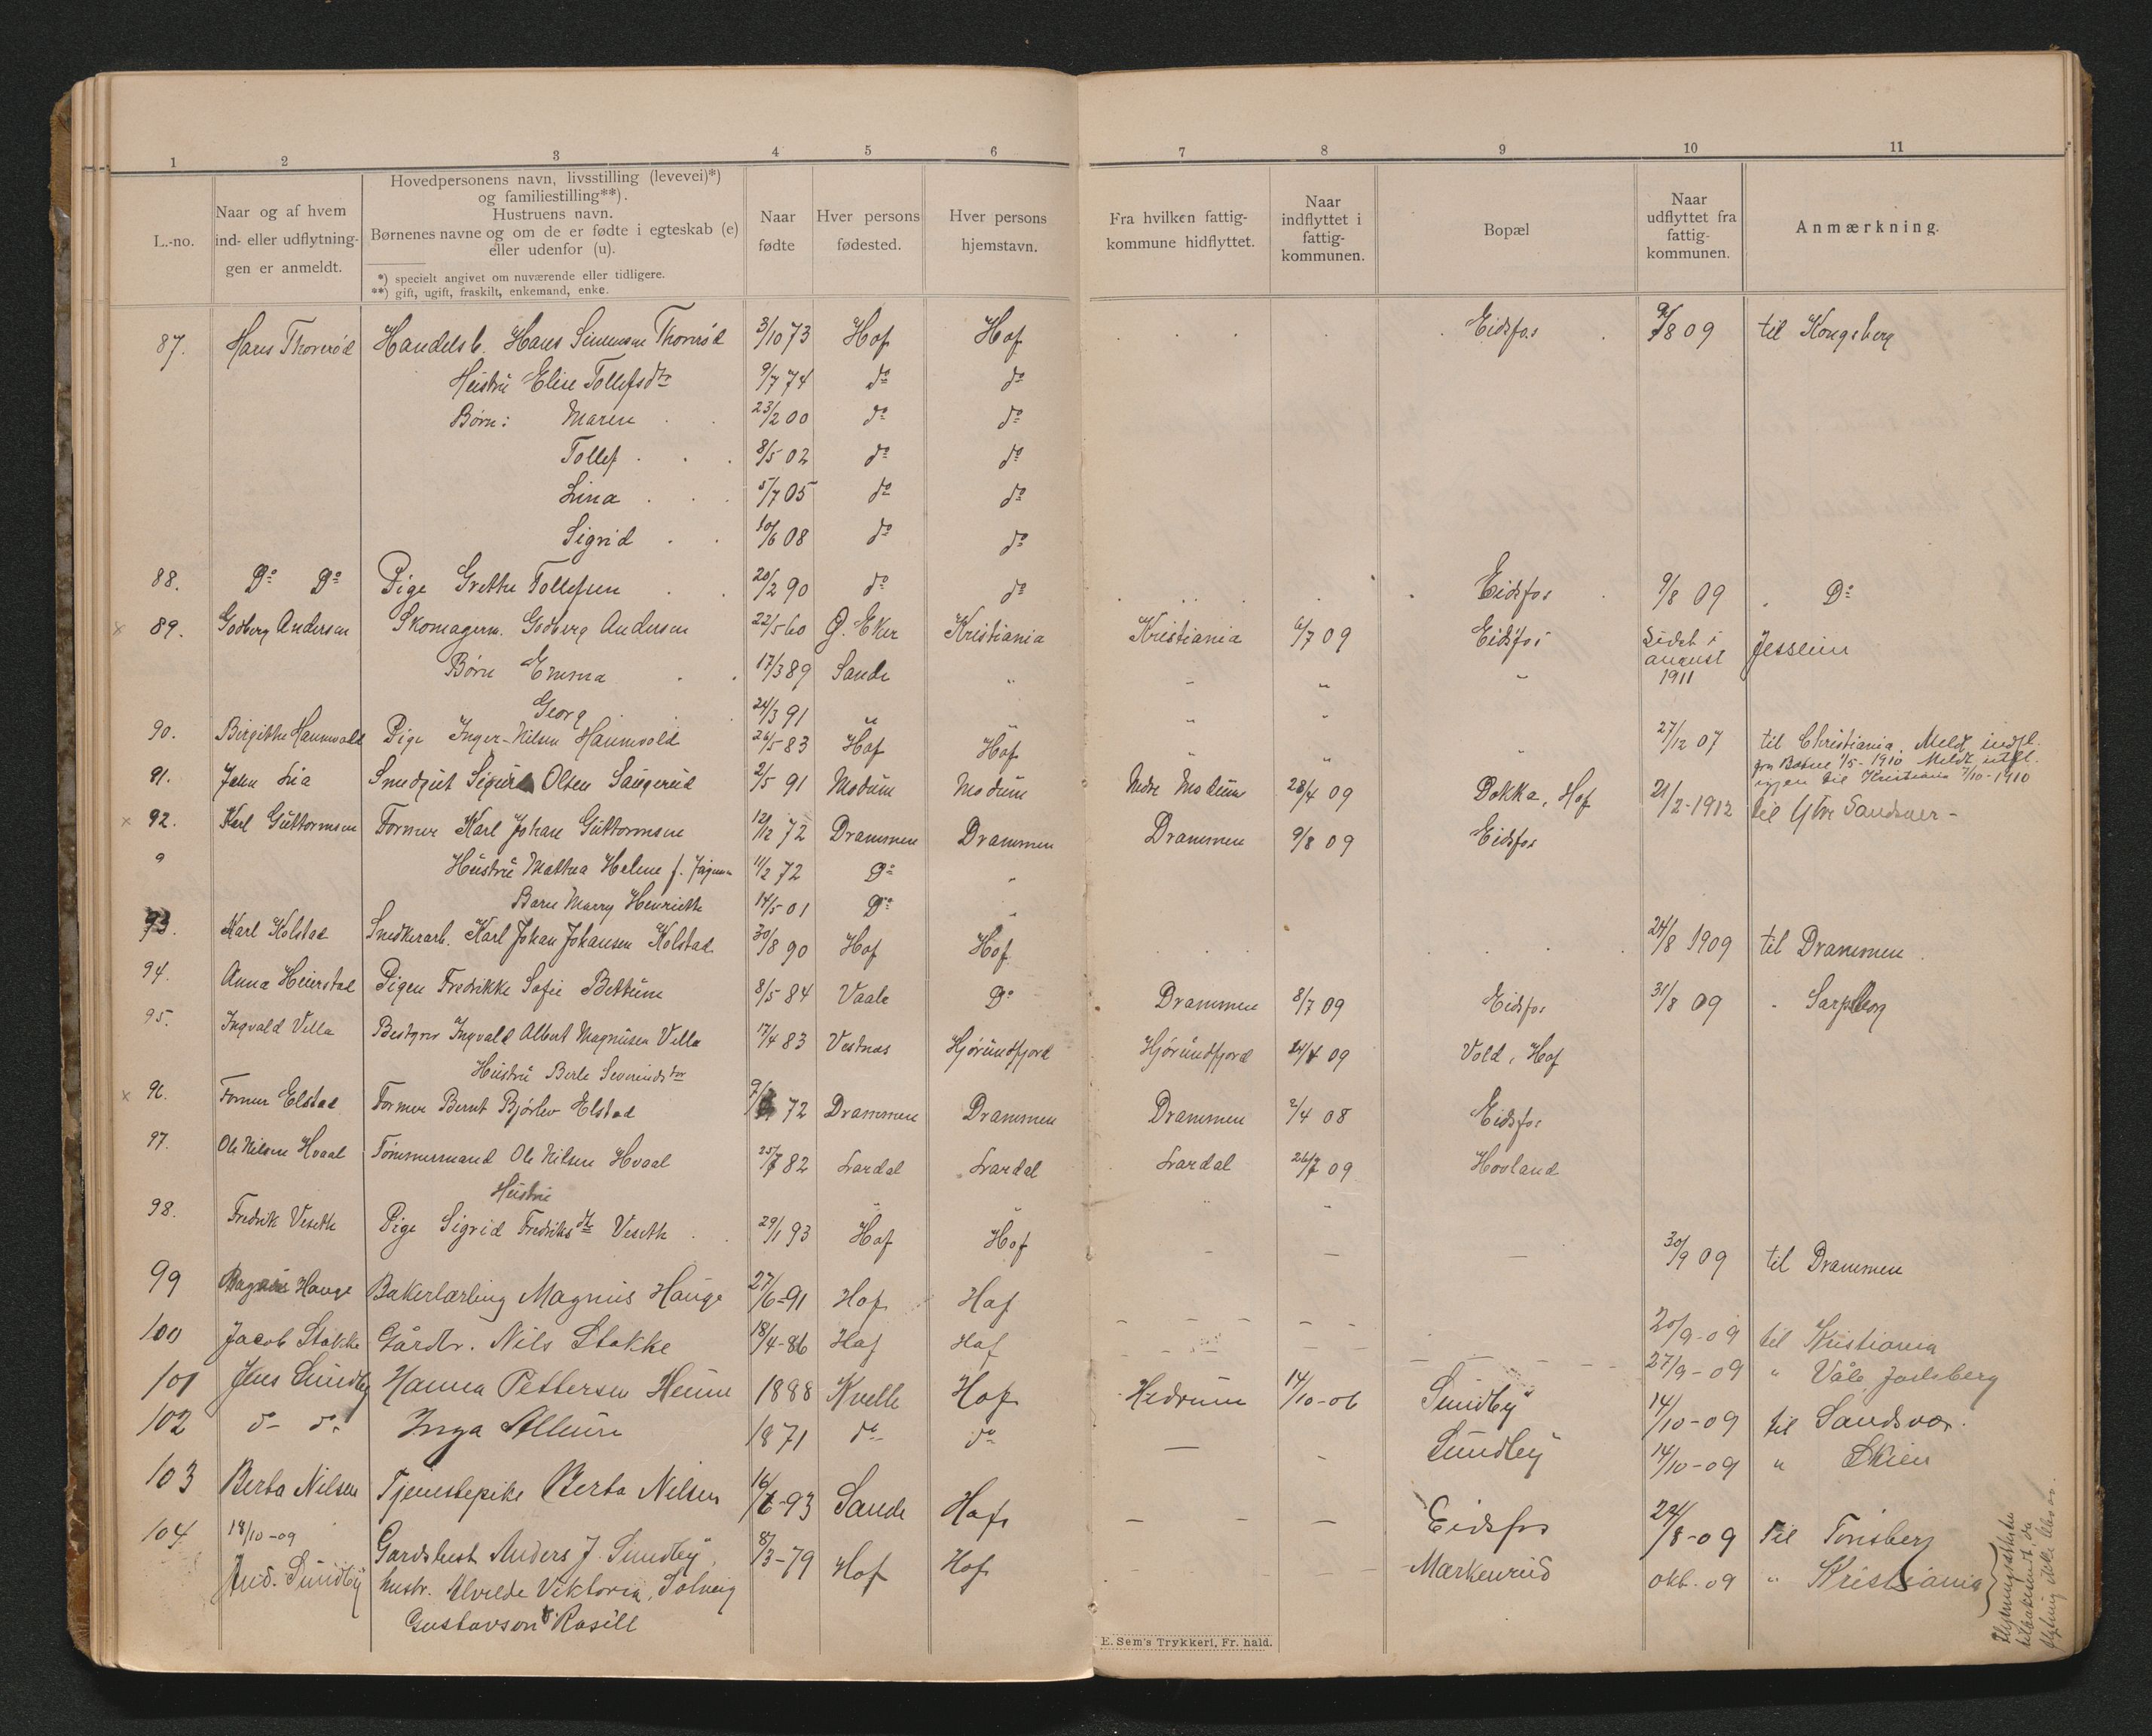 1 2 3 4 5 6 7 8 9 10 11
L.-no.
Naar og af hvem
ind- eller udflytnin-
gen er anmeldt.
Hovedpersonens navn, livsstilling (levevei)*)
og familiestilling**).
Hustruens navn.
Børnenes navne og om de er fødte i egteskab (e)
eller udenfor (u).
*) specielt angivet om nuværende eller tidligere.
**) gift, ugift, fraskilt, enkemand, enke.
Naar
fødte
Hver persons
fødested.
Hver persons
hjemstavn.
Fra hvilken fattig-
kommune hidflyttet.
Naar
indflyttet i
fattig-
kommunen.
Bopæl
Naar
udflyttet fra
fattig-
kommunen.
Anmærkning.
87. Hans Thorrød Handelsb. Hans Simensen Thorrød 3/10 73 Hof Hof Eidsfos 9/8 09 til Kongsberg
Hustru Elise Tollefsdtr 9/7 74 do do
Børn: Maren 23/2 00 do do
Tollef 8/5 02 do do
Lina 5/7 05 do do
Sigrid 10/6 08 do do
88. Do Do Pige Grethe Tollefsen 20/2 90 do do Eidsfos 9/8 09 Do
89. Godberg Andersen Skomagerm. Godberg Andersen 22/5 60 Ø. Eker Kristiania Kristiania 6/7 09 Eidsfos Sidst i august 1911 Jessheim
Børn Emma 17/3 89 Sande " " " "
Georg 24/3 91 " " " "
90. Birgithe Haunvold Pige Inger-Nilsen Haunvold 26/5 83 Hof Hof " " 27/12 07 til Christiania. Meldt indfl.
fra Botne 1/5-1910 Meldt utfl.
igjen til Kristiania 7/10-1910
91. John Lia Smedgut Sigurd Olsen Saugerud 2/5 91 Modum Modum Nedre Modum 28/4 09 Dokka, Hof 21/2-1912 til Ytre Sandsver-
92. Karl Guttormsen Former Karl Johan Guttormsen 12/12 72 Drammen Drammen Drammen 9/8 09 Eidsfos
Hustru Mathea Helene f. 11/2 72 Do "
Barn Marry Henriette 14/5 01 Do "
93. Karl Kolstad Snedkerarb. Karl Johan Johansen Kolstad 30/8 90 Hof Hof 24/8 1909 til Drammen
94. Anna Heierstad Pigen Fredrikke Sofie Bettum 8/5 84 Vaale Do Drammen 8/7 09 Eidsfos 31/8 09 " Sarpsborg
95. Ingvald Villa Bestyrer Ingvald Albert Magnusen Villa 17/4 83 Vestnes Hjørundfjord Hjørundfjord 24/4 09 Vold, Hof
Hustru Berte Severindsdtr
96. Former Elstad Former Bernt Bjørlev Elstad 72 Drammen Drammen Drammen 2/4 08 Eidsfos
97. Ole Nilsen Hvaal Tømmermand Ole Nilsen Hvaal 25/7 82 Lardal Lardal Lardal 26/7 09 Hovland
Hustru " " " "
98. Fredrik Veseth Pige Sigrid Fredriksdtr Veseth 29/1 93 Hof Hof – – – 30/9 09 til Drammen
99 Magnus Hauge Bakerlærling Magnus Hauge 27/6-91 Hof Hof – – – – – 20/9-09 til Kristiania
100 Jacob Stakke Gårdbr. Nils Stakke 18/4-86 Hof Hof – – – – – 27/9-09 " Våle Jarlsberg
101 Jens Sundby Hanna Pettersen Heum 1888 Kvelle Hof Hedrum 14/10-06 Sundby 14/10-09 til Sandsvær.
102 do do Inga Allum 1871 do do – - Sundby 14/10-09 " Skien
103 Berta Nilsen Tjenestepike Berta Nilsen 16/6-93 Sande Hof – – – Eidsfos 24/8-09 til Tønsberg
104 18/10-09
And. Sundby Gardsbest Anders J. Sundby, 8/3-79 Hof Hof – – – Markerud okt. 09 " Kristiania
hustr. Alvilde Viktoria, Solveig
Gustavson Rosill
Flytningsattester
tilbakesendt, da
flytning ikke blev av.
E. Sem's Trykkeri, Fr. hald.